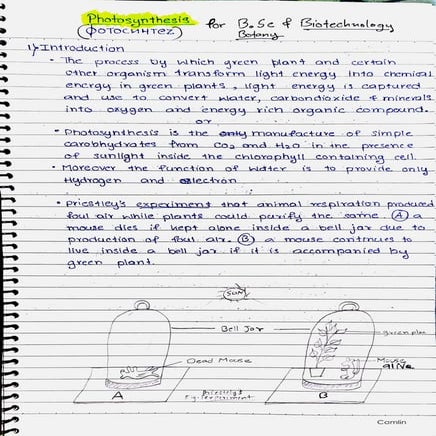 Photosynthesis for B.Sc & Biotechnology
(фотосинтез) Botany
1) Introduction
• The process by which green plant and certain
other organism transform light energy into chemical
energy in green plants, light energy is captured
and use to convert water, carbondioxide & minerals
into oxygen and energy rich organic compound.
or
• Photosynthesis is the only manufacture of simple
carobohydrates from CO2 and H2O in the presence
of sunlight inside the chlorophyll containing cell.
• Moreover the function of water is to provide only
Hydrogen and electron
• Priestley's experiment that animal respiration produced
foul air while plants could purify the same. (A) a
mouse dies if kept alone inside a bell jar due to
production of foul air. (B) a mouse continues to
live inside a bell jar if it is accompanied by
green plant.
SUN
Bell Jar
green plan
Dead Mouse
Mouse
alive
A
Priestley's
B
Camlin